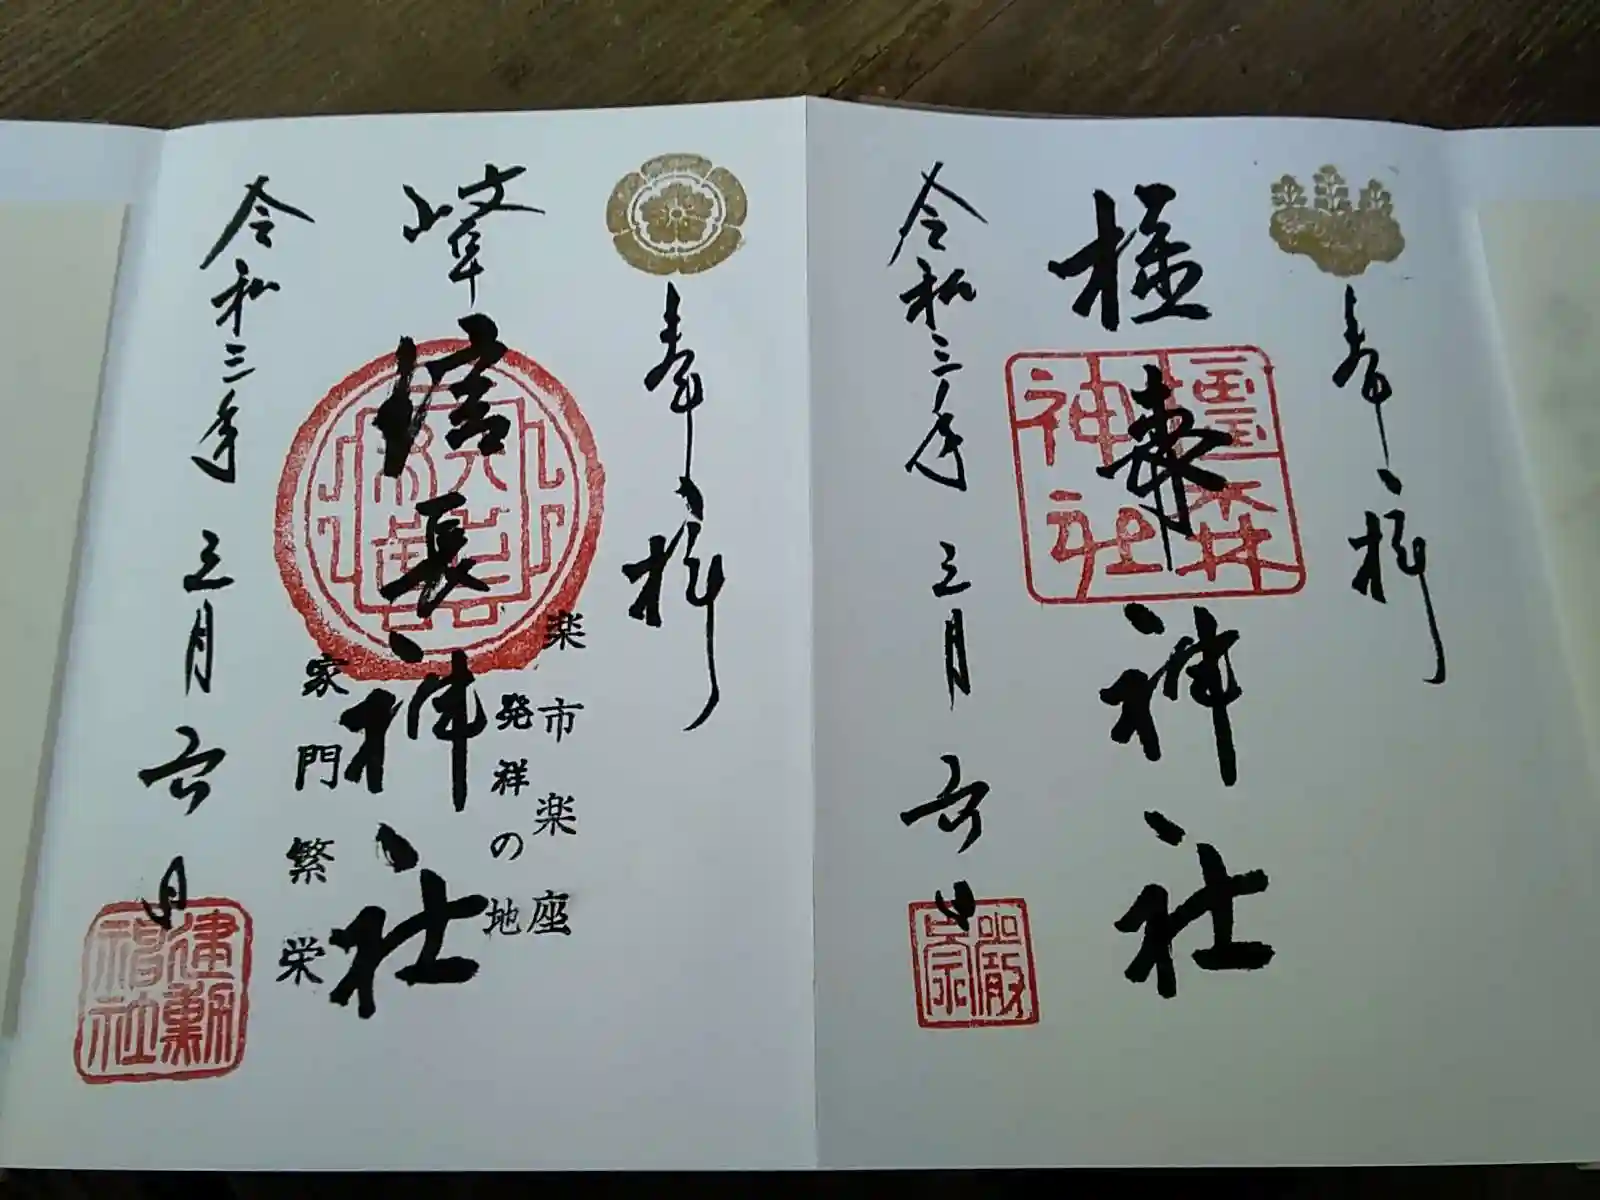 奉拝
橿森神社
橿森
神社
令和三年三月六日
奉拝
楽市楽座
発祥の地
岐阜信長神社
家門繁栄
令和三年三月六日
建勲